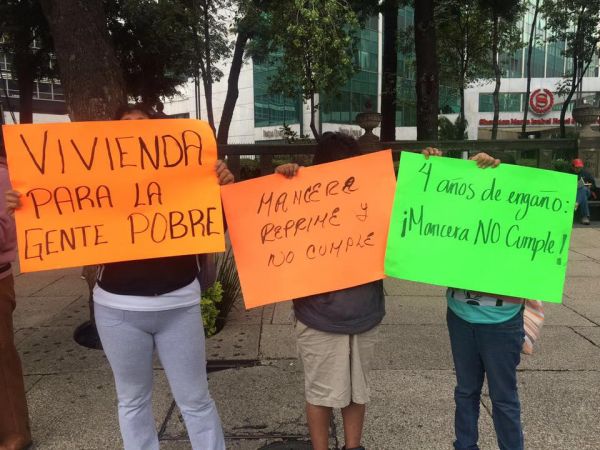 VIVIENDA
PARA LA
GENTE POBRE
MANCERA
REPRIME Y
NO CUMPLE
4 años de engaño:
¡Mancera NO Cumple!